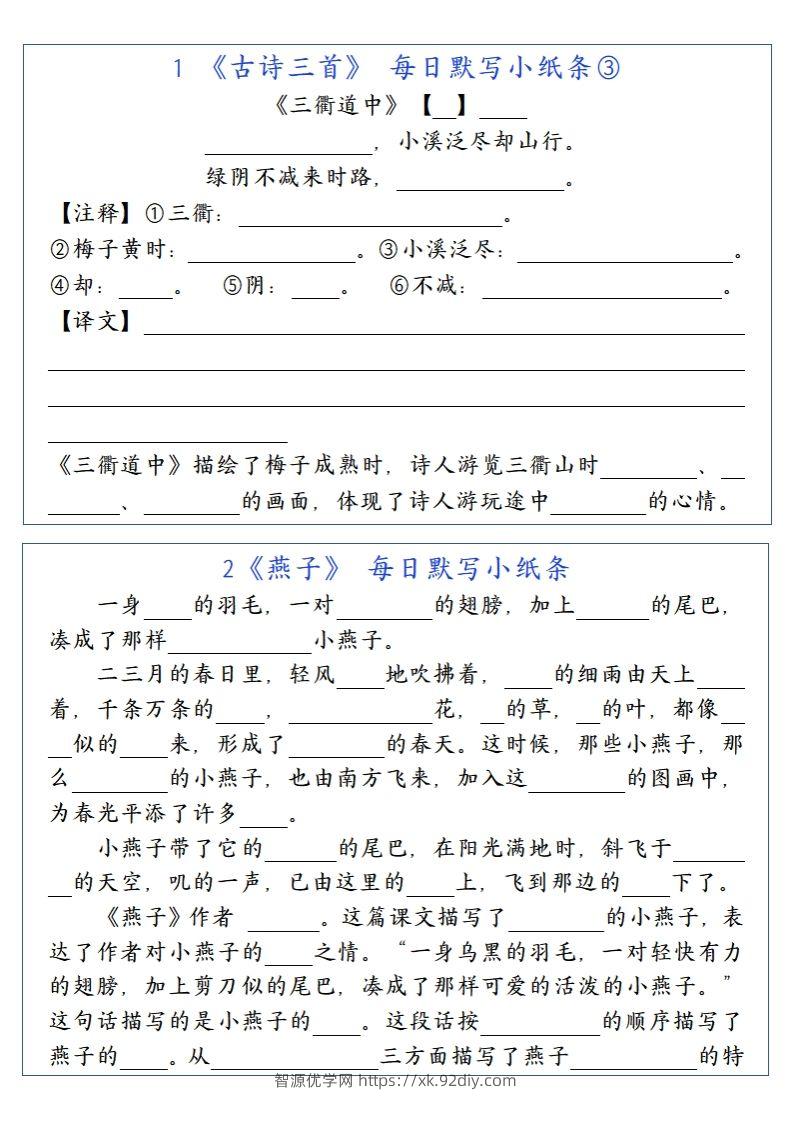 1 《古诗三首》 每日默写小纸条③
《三衢道中》【__】____
______________，小溪泛尽却山行。
绿阴不减来时路，______________。
【注释】①三衢：______________________。
②梅子黄时：______________。③小溪泛尽：__________________。
④却：____。 ⑤阴：____。 ⑥不减：____________________。
【译文】__________________________________________________
__________________________________________________________
__________________________________________________________
____________________
《三衢道中》描绘了梅子成熟时，诗人游览三衢山时________、__
______、________的画面，体现了诗人游玩途中________的心情。
2《燕子》 每日默写小纸条
一身____的羽毛，一对________的翅膀，加上______的尾巴，
凑成了那样____________小燕子。
二三月的春日里，轻风____地吹拂着，____的细雨由天上____
着，千条万条的____，____________花，__的草，__的叶，都像__
__似的____来，形成了________的春天。这时候，那些小燕子，那
么________的小燕子，也由南方飞来，加入这________的图画中，
为春光平添了许多____。
小燕子带了它的______的尾巴，在阳光满地时，斜飞于______
__的天空，叽的一声，已由这里的____上，飞到那边的____下了。
《燕子》作者 ______。这篇课文描写了________的小燕子，表
达了作者对小燕子的____之情。“一身乌黑的羽毛，一对轻快有力
的翅膀，加上剪刀似的尾巴，凑成了那样可爱的活泼的小燕子。”
这句话描写的是小燕子的____。这段话按__________的顺序描写了
燕子的____。从______________三方面描写了燕子__________的特
智源优学网 https://xk.92diy.com